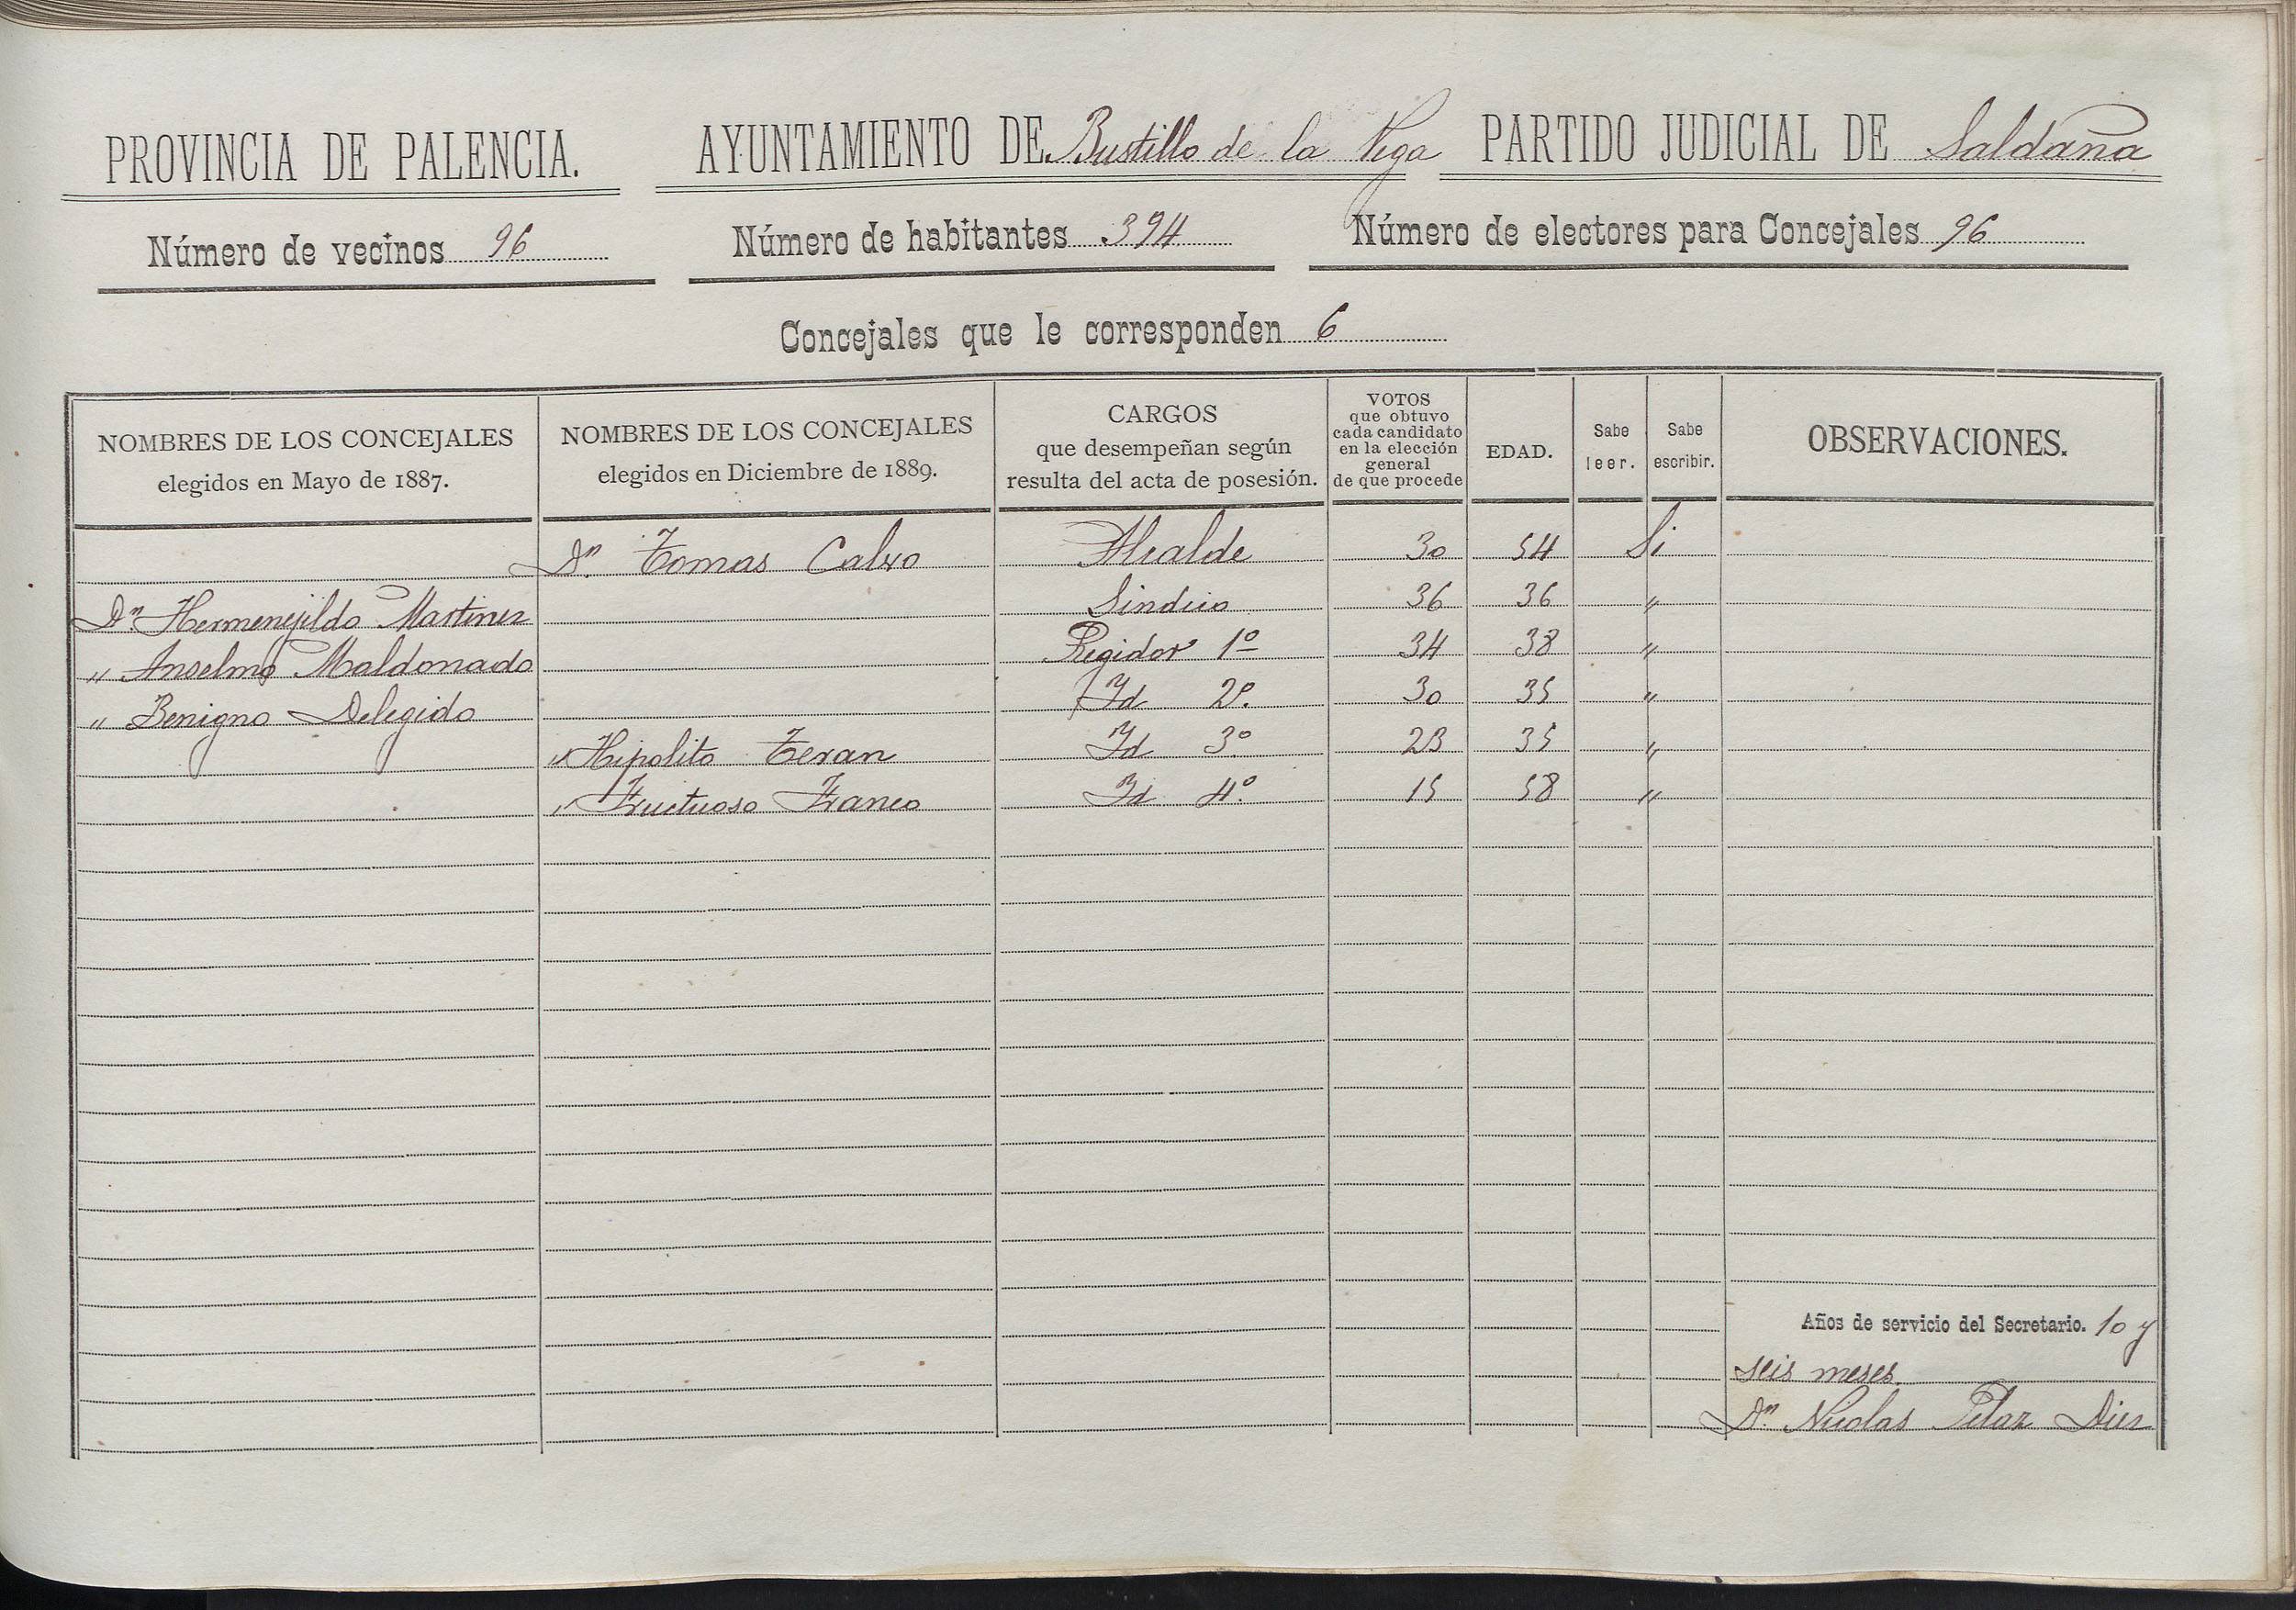 PROVINCIA DE PALENCIA. AYUNTAMIENTO DE Bustillo de la Vega PARTIDO JUDICIAL DE Saldaña
Número de vecinos 96 Número de habitantes 394 Número de electores para Concejales 96
Concejales que le corresponden 6
NOMBRES DE LOS CONCEJALES
elegidos en Mayo de 1887.
NOMBRES DE LOS CONCEJALES
elegidos en Diciembre de 1889.
CARGOS
que desempeñan según
resulta del acta de posesión.
VOTOS
que obtuvo
cada candidato
en la elección
general
de que procede
EDAD.
Sabe
leer.
Sabe
escribir.
OBSERVACIONES.
Dn. Tomas Calvo Alcalde 30 54 Si
Dn Hermenejildo Martinez Sindico 36 36 "
" Anselmo Maldonado Regidor 1º 34 38 "
" Benigno Delegido Id 2º. 30 35 "
" Hipolito Teran Id 3º 23 35 "
" Fructuoso Franco Id 4º. 15 58 "
Años de servicio del Secretario. 10 y
seis meses.
Dn. Nicolas Pelaz Diez